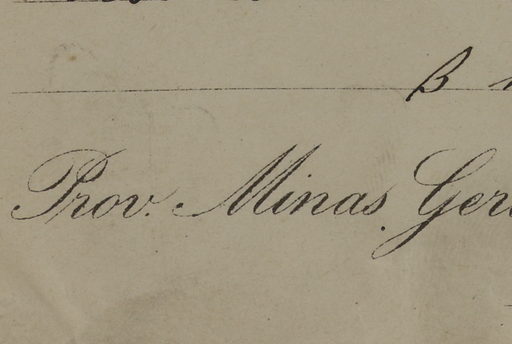 Prov. Minas Ger